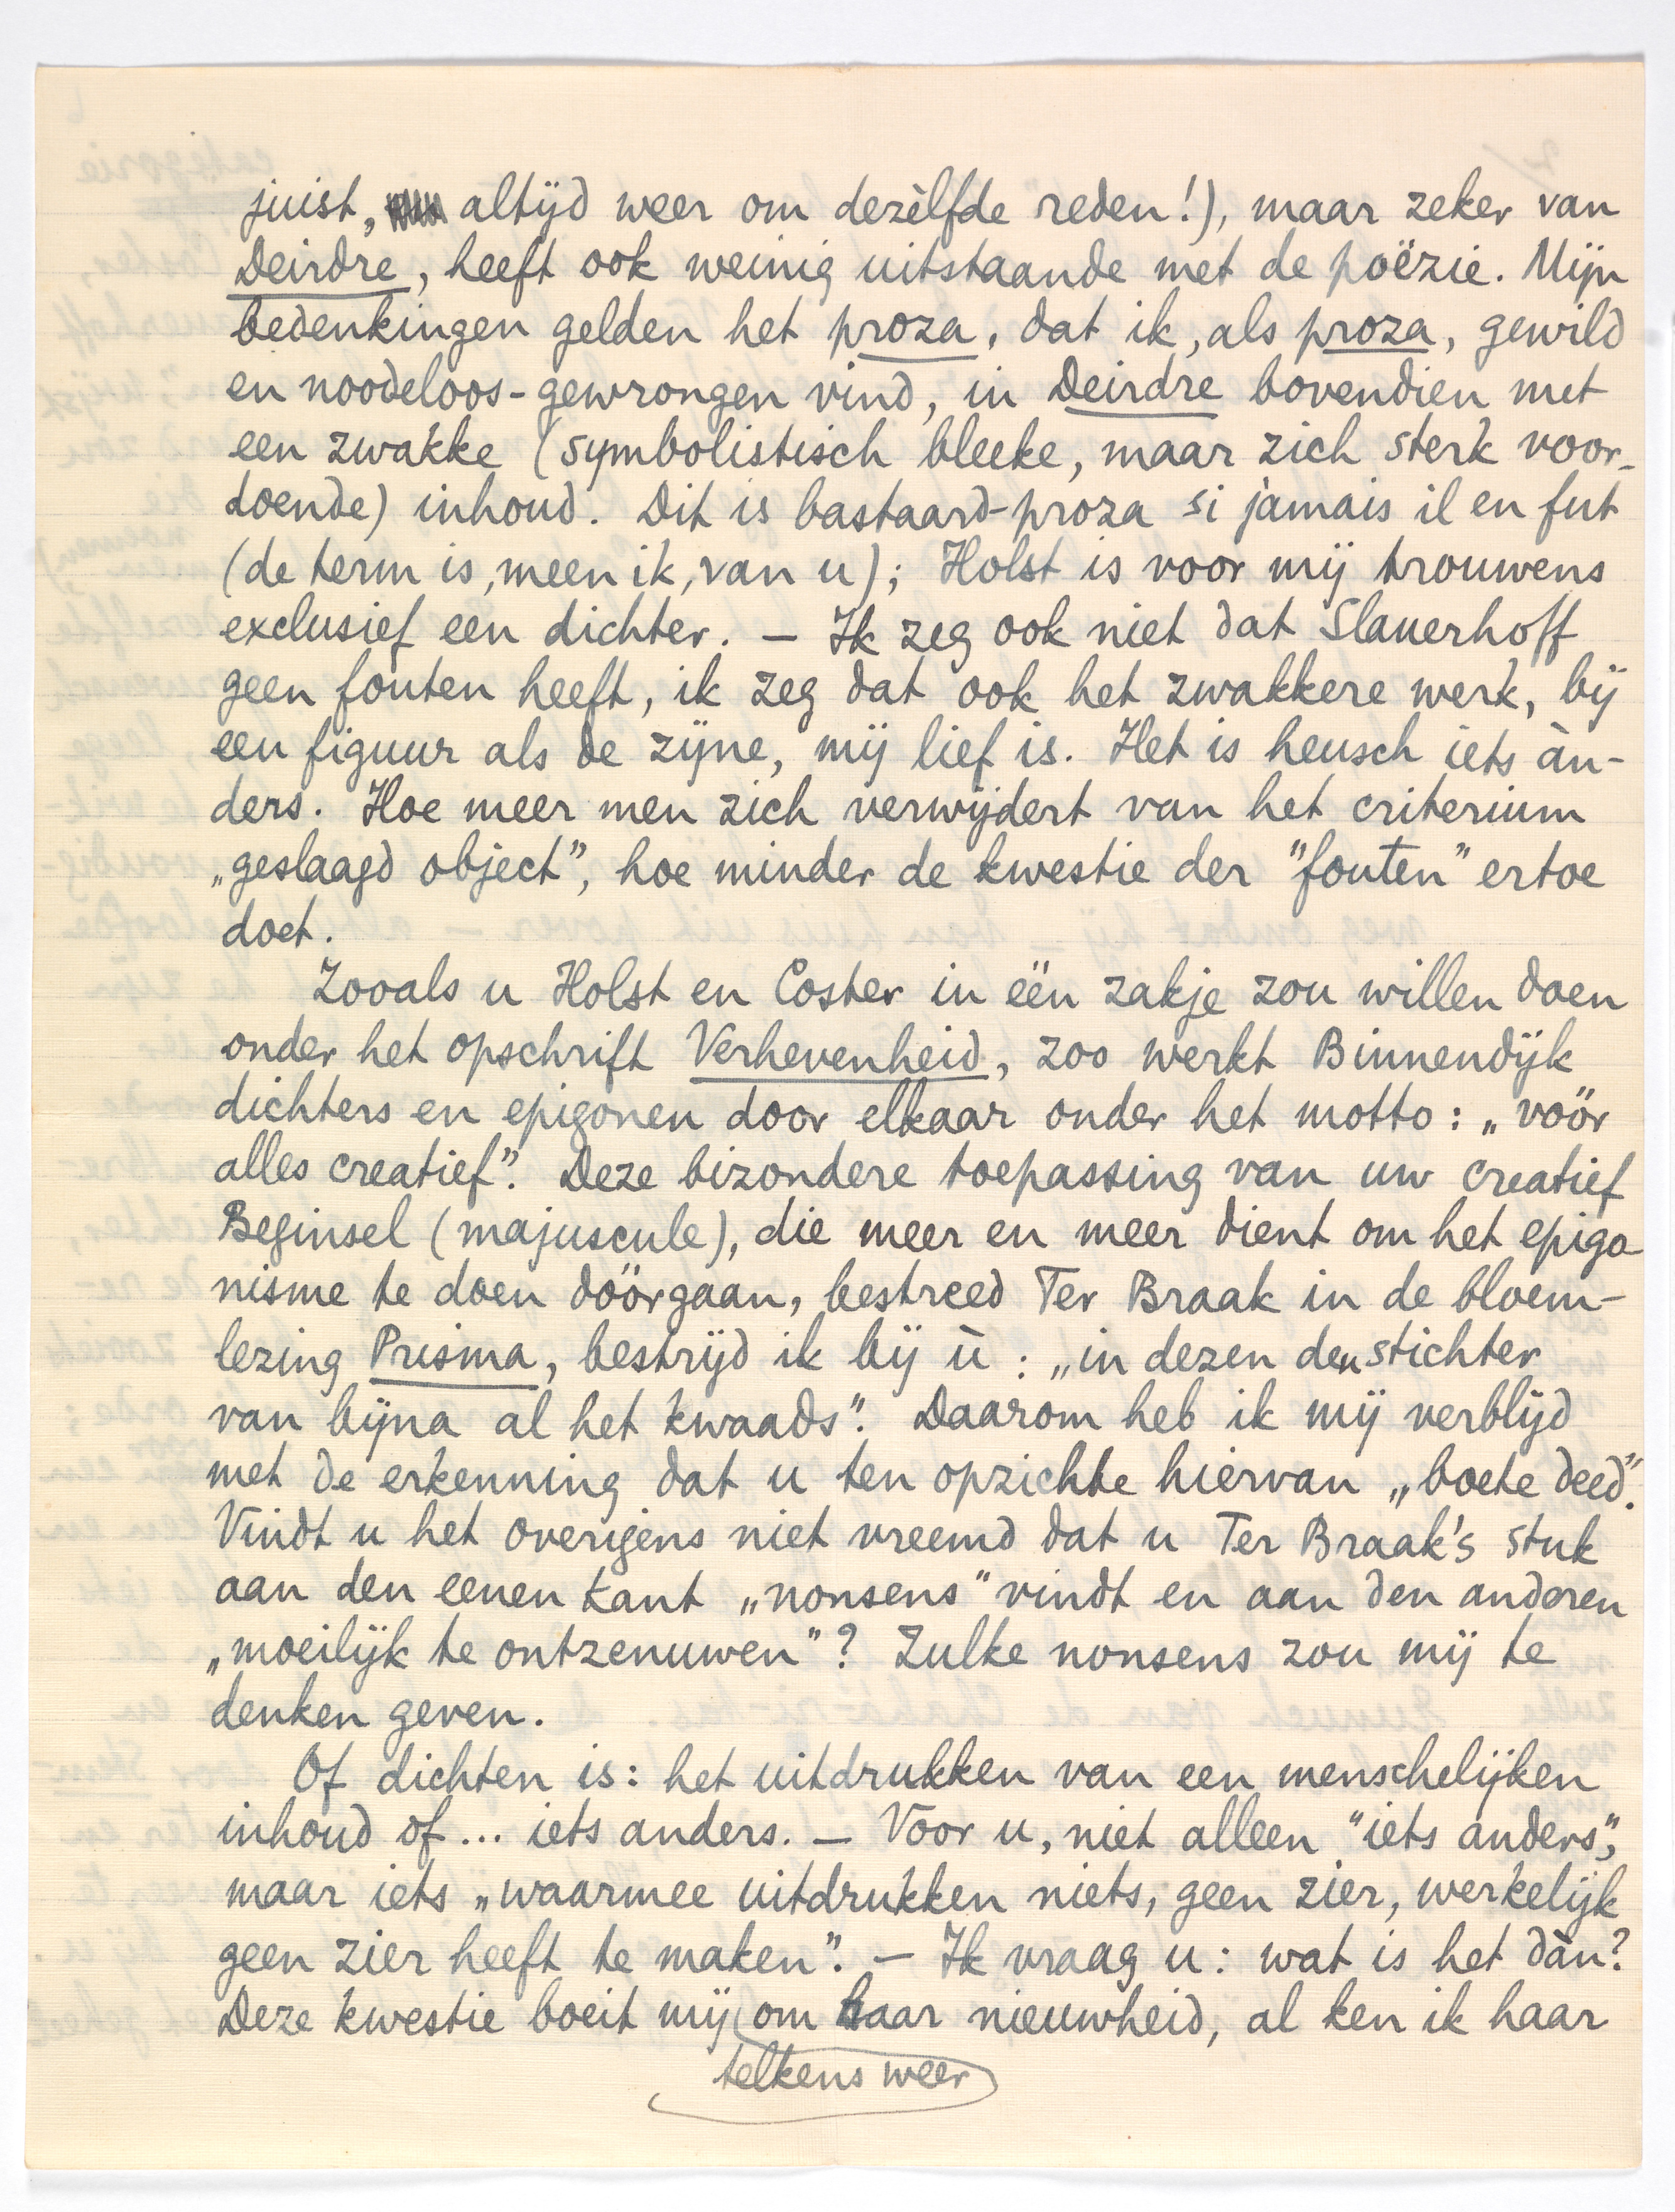 juist, altijd weer om dezèlfde reden!), maar zeker van
Deirdre, heeft ook weinig uitstaande met de poëzie. Mijn
bedenkingen gelden het proza, dat ik, als proza, gewild
en noodeloos-gewrongen vind, in Deirdre bovendien met
een zwakke (symbolistisch bleeke, maar zich sterk voor-
doende) inhoud. Dit is bastaard-proza si jamais il en fut
(de term is, meen ik, van u); Holst is voor mij trouwens
exclusief een dichter. — Ik zeg ook niet dat Slauerhoff
geen fouten heeft, ik zeg dat ook het zwakkere werk, bij
een figuur als de zijne, mij lief is. Het is heusch iets àn-
ders. Hoe meer men zich verwijdert van het criterium
„geslaagd object", hoe minder de kwestie der "fouten" ertoe
doet.
Zooals u Holst en Coster in één zakje zou willen doen
onder het opschrift Verhevenheid, zoo werkt Binnendijk
dichters en epigonen door elkaar onder het motto: „vóór
alles creatief". Deze bizondere toepassing van uw creatief
Beginsel (majuscule), die meer en meer dient om het epigo-
nisme te doen dóórgaan, bestreed Ter Braak in de bloem-
lezing Prisma, bestrijd ik bij ù: „in dezen den stichter
van bijna al het kwaads". Daarom heb ik mij verblijd
met de erkenning dat u ten opzichte hiervan „boete deed".
Vindt u het overigens niet vreemd dat u Ter Braak's stuk
aan den eenen kant „nonsens" vindt en aan den anderen
„moeilijk te ontzenuwen"? Zulke nonsens zou mij te
denken geven.
Of dichten is: het uitdrukken van een menschelijken
inhoud of... iets anders. — Voor u, niet alleen "iets anders",
maar iets „waarmee uitdrukken niets, geen zier, werkelijk
geen zier heeft te maken". — Ik vraag u: wat is het dàn?
Deze kwestie boeit mij om haar nieuwheid, al ken ik haar
telkens weer